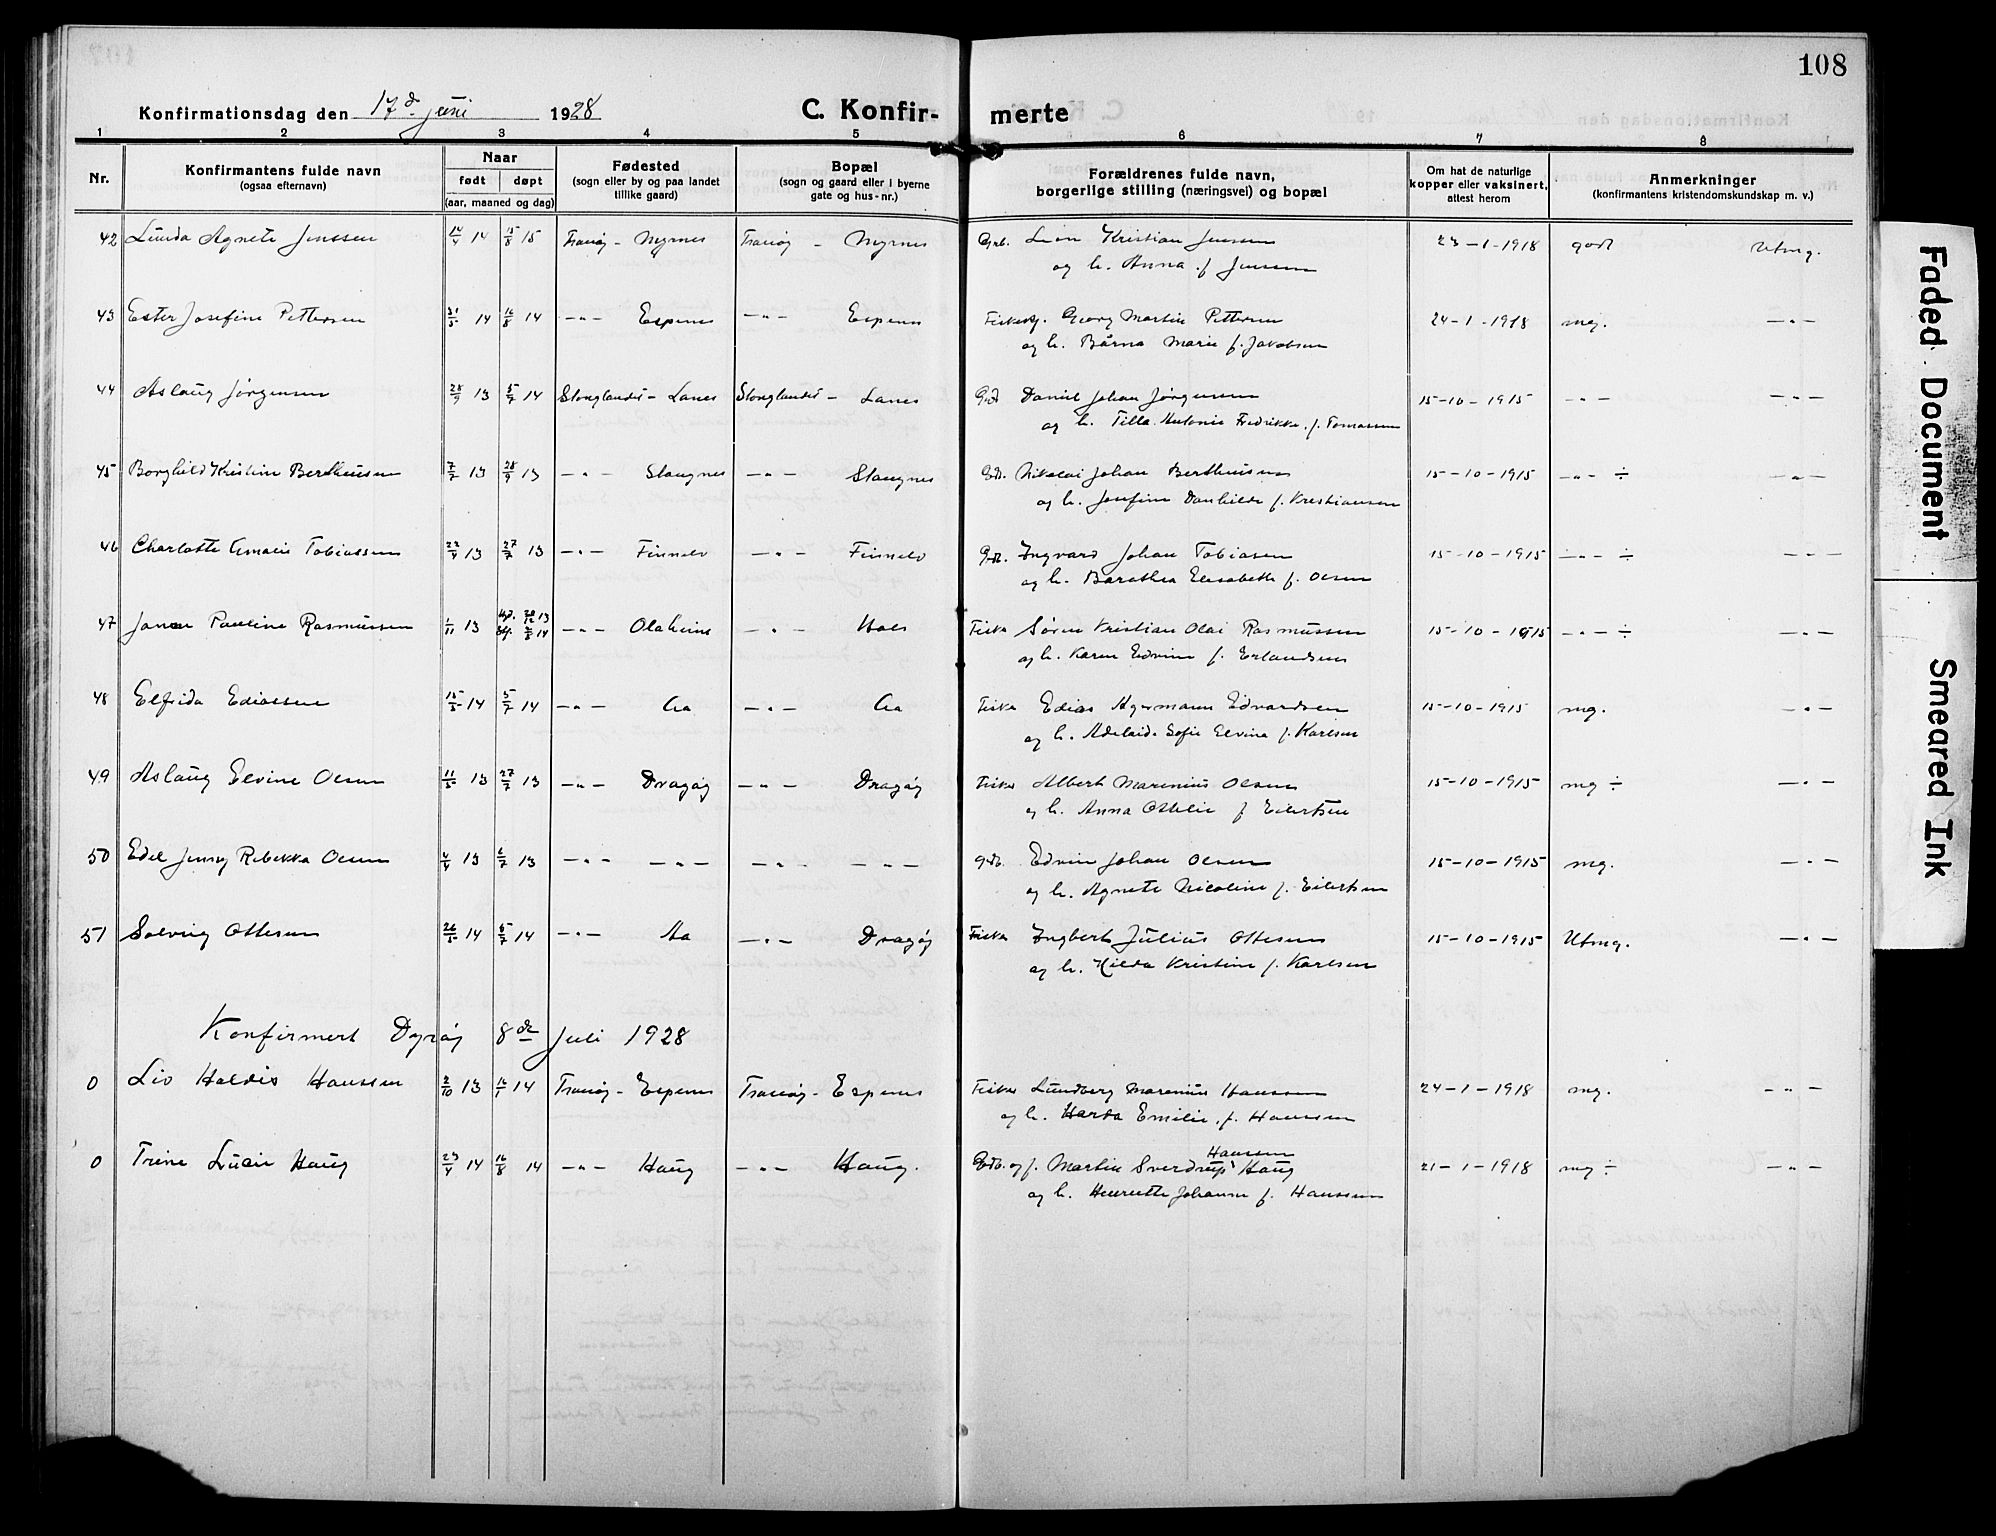 108
Konfirmationsdag den 17d juni 1928 C. Konfir- merte
1 2 3 4 5 6 7 8
Nr. Konfirmantens fulde navn (ogsaa efternavn) Naar født døpt (aar, maaned og dag) Fødested (sogn eller by og paa landet tillike gaard) Bopæl (sogn og gaard eller i byerne gate og hus-nr.) Forældrenes fulde navn, borgerlige stilling (næringsvei) og bopæl Om hat de naturlige kopper eller vaksinert, attest herom Anmerkninger (konfirmantens kristendomskundskap m. v.)
42 Agnete Jenssen 14/4 14 15/8 15 Tranøy - Myrnes Tranøy - Myrnes Kristian Jenssen 23-1-1918 godt Utmg.
og h. Anna f. Jenssen
43 Ester Josefine Pettersen 31/5 14 16/8 14 -"- Espenes -"- Espenes Georg Martin Pettersen 24-1-1918 mg. -"-
og h. Bårna Marie f. Jakobsen
44 Aslaug Jørgensen 28/9 13 5/7 14 Stonglandet - Lanes Stonglandet - Lanes Daniel Johan Jørgensen 15-10-1915 -"- -"-
og h. Tilla Antonie Fredrikke f. Tomassen
45 Borghild Kristine Bertheusen 7/7 13 28/9 13 -"- Stangnes -"- Stangnes Nikolai Johan Bertheusen 15-10-1915 -"- ÷ -"-
og h. Josefine Danhilde f. Kristiansen
46 Charlotte Amalie Tobiassen 22/4 13 27/7 13 -"- Finnelv -"- Finnelv Ingvard Johan Tobiasen 15-10-1915 -"- ÷ -"-
og h. Barothea Elisabeth f. Olsen
47 Pauline Rasmussen 1/11 13 -"- Olaheim -"- Hals Fisker Søren Kristian Olai Rasmussen 15-10-1915 -"- ÷ -"-
og h. Karen Edvine f. Erlandsen
48 Elfrida Ediassen 15/5 14 5/7 14 -"- Aa -"- Aa Fisker Edias Agermann Edvardsen 15-10-1915 mg. -"-
og h. Adelaide Sofie Elvina f. Karlsen
49 Aslaug Elvine Olsen 11/5 13 27/7 13 -"- Dragøy -"- Dragøy Fisker Albert Marenius Olsen 15-10-1915 mg ÷ -"-
og h. Anna Othelie f Eilertsen
50 Edel Jenny Rebekka Olsen 4/4 13 6/7 13 -"- -"- -"- -"- Edvin Johan Olsen 15-10-1915 mg. -"-
og h. Agnete Nicoline f. Eilertsen
51 Solveig Ottesen 26/5 14 5/7 14 -"- Aa -"- Dragøy Fisker Ingbert Julius Ottesen 15-10-1915 Utmg. -"-
og h. Hilda Kristine f. Karlsen
Konfirmert Dyrøy 8de Juli 1928
0 Liv Haldis Hanssen 2/10 13 14 Tranøy - Espenes Tranøy - Espenes Fisker Lundberg Marenius Hanssen 24-1-1918 mg. -"-
og h. Harda Emilie f. Hanssen
0 Trine Lucie Haug 23/4 14 16/8 14 -"- Haug -"- Haug. Martin Sverdrup Hanssen Haug 21-1-1918 mg ÷ -"-
og h. Henriette Johanne f. Hanssen
Faded Document
Smeared Ink